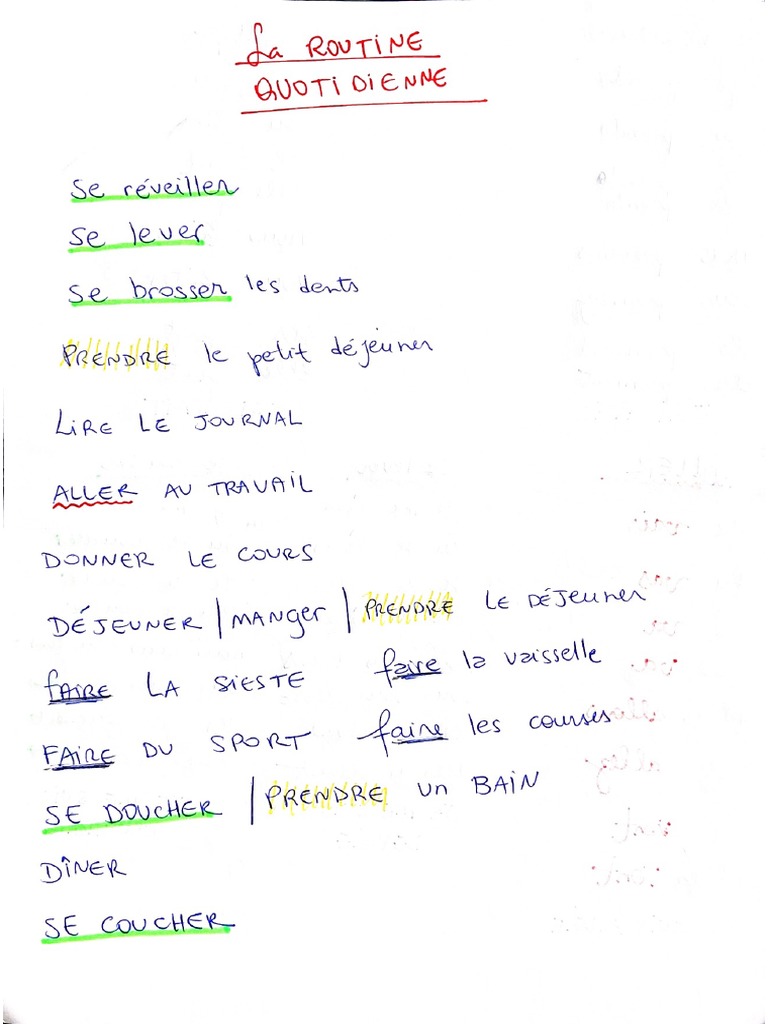 La ROUTINE
QUOTIDIENNE
Se réveiller
Se lever
Se brosser les dents
PRENDRE le petit déjeuner
LIRE LE JOURNAL
ALLER AU TRAVAIL
DONNER LE COURS
DÉJEUNER | MANGER | PRENDRE LE DÉJEUNER
FAIRE LA SIESTE faire la vaisselle
FAIRE DU SPORT faire les courses
SE DOUCHER | PRENDRE un BAIN
DÎNER
SE COUCHER